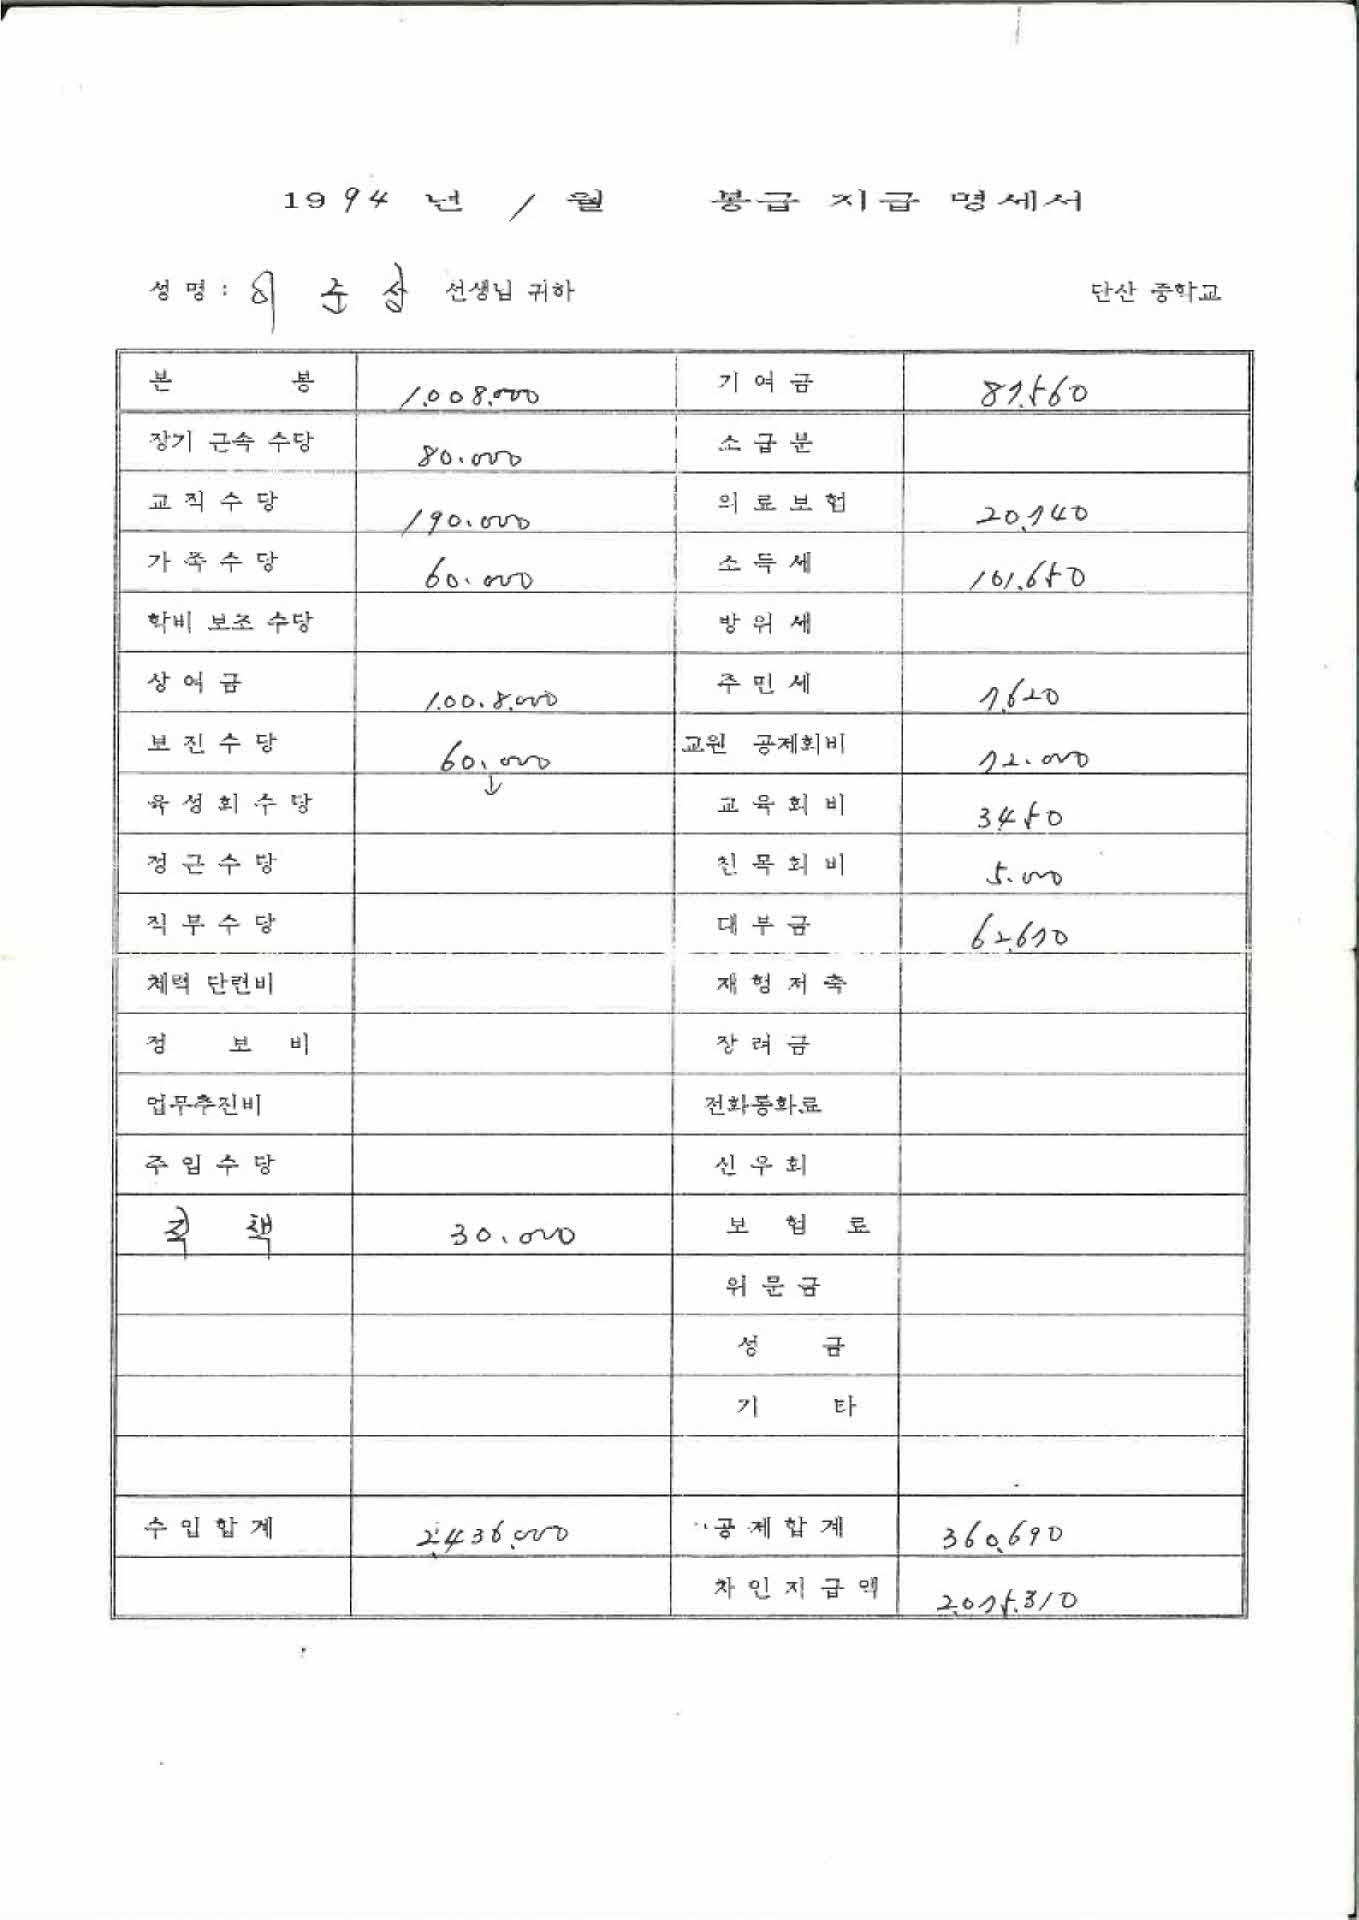 1994 년 1 월 봉급 지급 명세서
성 명 : 이 준 상 선생님 귀하 단산 중학교
본 봉 1.008.000 기 여 금 87.560
장기 근속 수당 80.000 소 급 분
교 직 수 당 190.000 의 료 보 험 20.740
가 족 수 당 60.000 소 득 세 101.650
학비 보조 수당 방 위 세
상 여 금 1.00.8.000 주 민 세 7.620
보 진 수 당 60.000 교원 공제회비 72.000
육 성 회 수 당 교 육 회 비 3450
정 근 수 당 친 목 회 비 5.000
직 무 수 당 대 부 금 62.670
체력 단련비 재 형 저 축
정 보 비 장 려 금
업무추진비 전화통화료
주 임 수 당 신 우 회
직 책 30.000 보 험 료
위 문 금
성 금
기 타
수 입 합 계 2.436.000 공 제 합 계 360.690
차 인 지 급 액 2.075.310